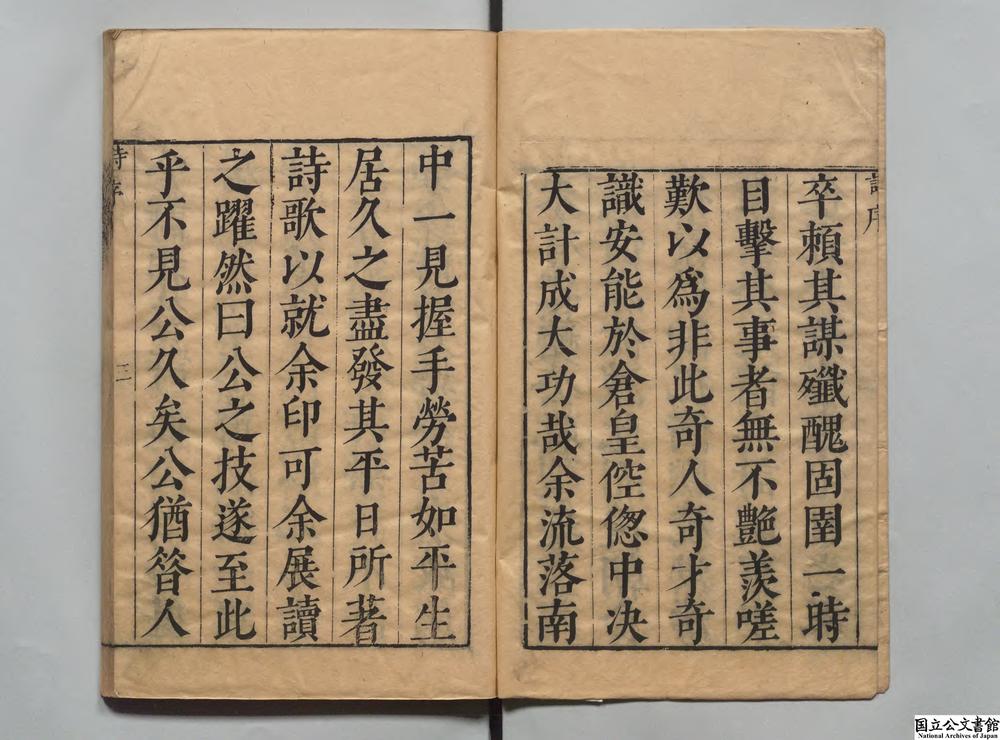 詩序
卒賴其謀殲醜固圉一時
目擊其事者無不艷羨嗟
歎以爲非此奇人奇才奇
識安能於倉皇倥偬中决
大計成大功哉余流落南
中一見握手勞苦如平生
居久之盡發其平日所著
詩歌以就余印可余展讀
之躍然曰公之技遂至此
乎不見公久矣公猶昝人
詩序
三
国立公文書館
National Archives of Japan